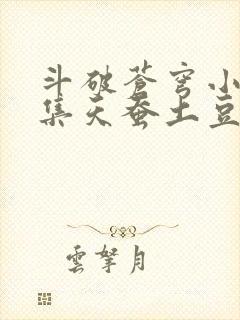 斗破苍穹小
集天蚕土豆
雲拏月